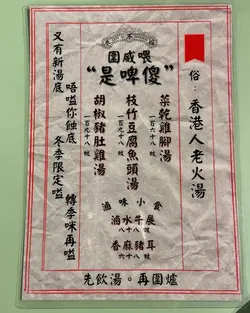 喂威圍
“傻啤是”
俗：香港人老火湯
菜乾雞腳湯
一百六十八蚊
枝竹豆腐魚頭湯
一百九十八蚊
胡椒豬肚雞湯
一百九十八蚊
滷味小食
滷水牛展
八十八蚊
香麻豬耳
又有新湯底
唔嗌你蝕底
冬季限定嗌
轉季咪再嗌
先飲湯。再圍爐